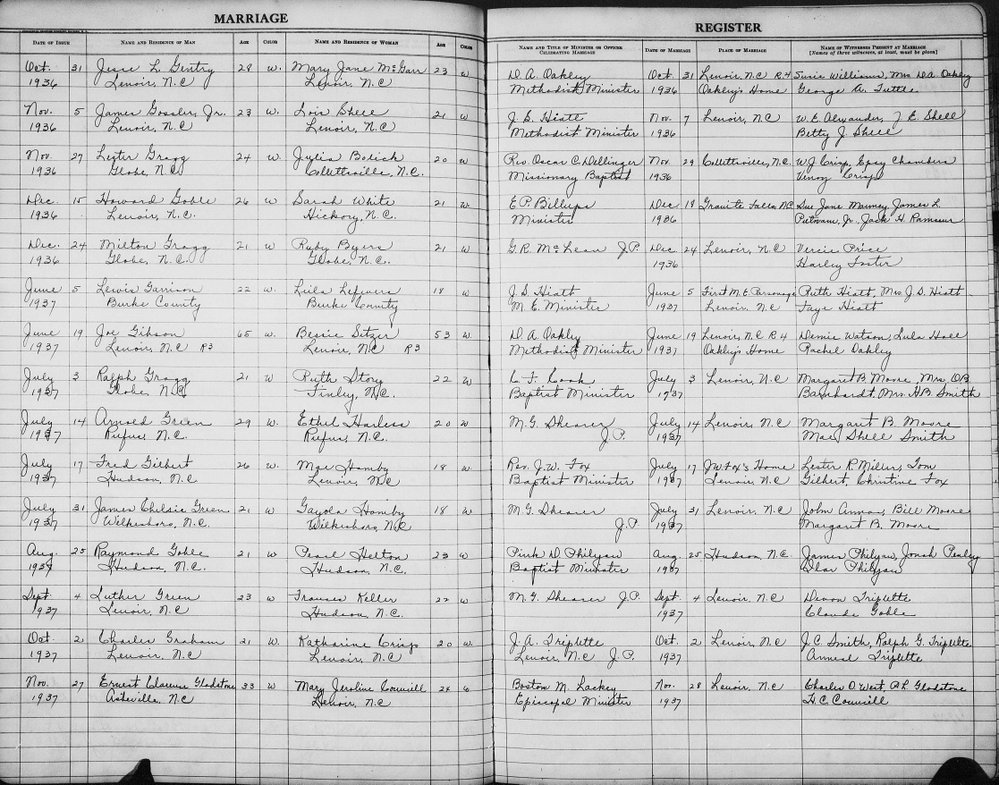 MARRIAGE
DATE OF ISSUE NAME AND RESIDENCE OF MAN AGE COLOR NAME AND RESIDENCE OF WOMAN AGE COLOR
Oct. 31 Jesse L. Gentry 28 w. Mary Jane McGarr 23 w
1936 Lenoir, N.C. Lenoir, N.C.
Nov. 5 James Gossler, Jr. 23 w. Lois Shell 21 w
1936 Lenoir, N.C. Lenoir, N.C.
Nov. 27 Lester Gragg 24 w. Julia Bolick 20 w
1936 Globe, N.C. Collettsville, N.C.
Dec. 15 Howard Goble 26 w Sarah White 21 w
1936 Lenoir, N.C. Hickory, N.C.
Dec. 24 Milton Gragg 21 w Ruby Byers 21 w
1936 Globe, N.C. Globe, N.C.
June 5 Lewis Garrison 22 w. Leila Lefevers 18 w
1937 Burke County Burke County
June 19 Joe Gibson 65 w. Bessie Setzer 53 w
1937 Lenoir, N.C R3 Lenoir, N.C R3
July 3 Ralph Gragg 21 w Ruth Story 22 w
1937 Globe, N.C. Finley, N.C.
July 14 Arnold Green 29 w. Ethel Harless 20 w
1937 Rufus, N.C. Rufus, N.C.
July 17 Fred Gilbert 26 w. Mae Hamby 18 w
1937 Hudson, N.C Lenoir, N.C
July 31 James Chelsie Green 21 w Gayola Hamby 18 w
1937 Wilkesboro, N.C. Wilkesboro, N.C
Aug. 25 Raymond Goble 21 w Pearl Helton 23 w
1937 Hudson, N.C. Hudson, N.C.
Sept 4 Luther Green 23 w Frances Keller 22 w
1937 Lenoir, N.C Hudson, N.C.
Oct. 2 Charles Graham 21 w. Katharine Crisp 20 w
1937 Lenoir, N.C. Lenoir, N.C
Nov. 27 Ernest Clarence Gladstone 33 w Mary Jeroline Councill 24
1937 Asheville, N.C Lenoir, N.C
REGISTER
NAME AND TITLE OF MINISTER OR OFFICER CELEBRATING MARRIAGE DATE OF MARRIAGE PLACE OF MARRIAGE NAME OF WITNESSES PRESENT AT MARRIAGE
[Names of three witnesses, at least, must be given]
D. A. Oakley Oct. 31 Lenoir, N.C R4 Susie Williams, Mrs. D.A. Oakley
Methodist Minister 1936 Oakley's Home George A. Tuttle
J. S. Hiatt Nov. 7 Lenoir, N.C W.E. Alexander, Z E Shell
Methodist Minister 1936 Betty J Shell
Rev. Oscar C. Dellinger Nov 29 Collettsville, N.C. W J Crisp, Chambers
Missionary Baptist 1936 Crisp
E.P. Billups Dec. 19 Granite Falls N.C Sue Jane Mauney James L
Minister 1936 Putnam, Jr. Jack H Ramseur
G.R. McLean J.P. Dec 24 Lenoir, N.C Vercie Price
1936 Harley Foster
J. S. Hiatt June 5 First M.E. Parsonage Ruth Hiatt, Mrs J.S. Hiatt
M.E. Minister 1937 Lenoir, N.C Faye Hiatt
D. A. Oakley June 19 Lenoir, N.C R4 Watson, Lula Hall
Methodist Minister 1937 Oakley's Home Rachel Oakley
C. F. Cook July 3 Lenoir, N.C Margaret B. Moore, Mrs. O.B.
Baptist Minister 1937 Barnhardt, Mrs. H.B. Smith
M.G. Shearer July 14 Lenoir, N.C Margaret B. Moore
J.P. 1937 Mae Shell Smith
Rev. J.W. Fox July 17 J W Fox's Home Lester R Miller, Tom
Baptist Minister 1937 Lenoir, N.C Gilbert, Christine Fox
M.G. Shearer July 31 Lenoir, N.C John Bill Moore
J.P. 1937 Margaret B. Moore
Pink D Philyaw Aug. 25 Hudson, N.C. James Philyaw, Jonah
Baptist Minister 1937 Philyaw
M.G. Shearer J.P. Sept 4 Lenoir, N.C Triplette
1937 Claude Goble
J.A. Triplette Oct. 2 Lenoir, N.C J.C. Smith, Ralph G. Triplette
Lenoir, N.C J.P. 1937 Triplette
Boston M. Lackey Nov. 28 Lenoir, N.C Charles O. West, Gladstone
Episcopal Minister 1937 H.C. Councill